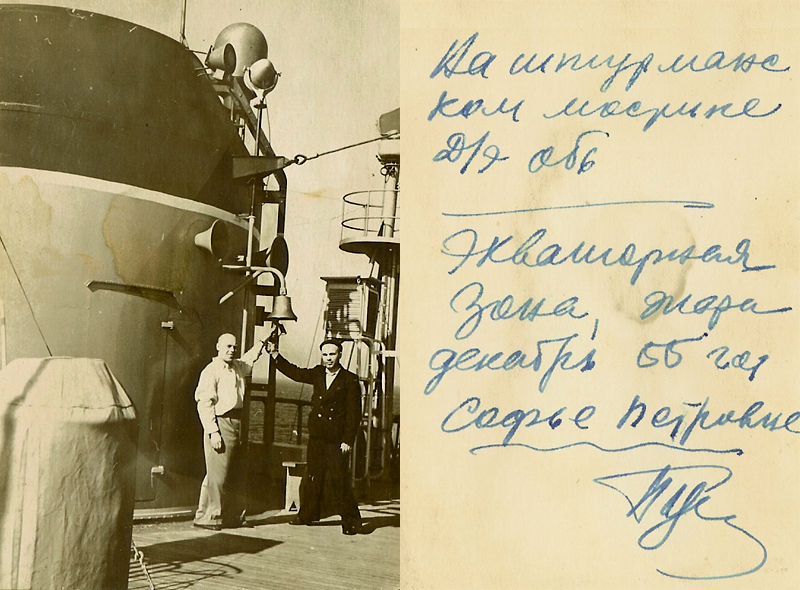 На штурманс
ком мостике
Д/э Обь
Экваторная
зона, жара
декабрь 55 год
Софье Петровне